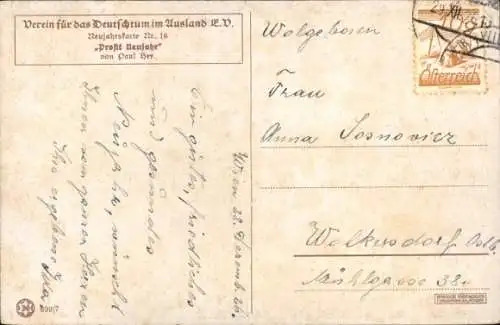 Verein für das Deutschtum im Ausland E.V.
Neujahrskarte Nr. 16
„Prosit Neujahr"
von Paul Hey.
Wien 28. Dezemb. 26.
Ein gutes, friedliches
und gesundes
Neujahr, wünscht
Ihnen vom ganzen Herzen
Ihre ergebene Ida
890/7
Wolgeboren
Frau
Anna Sosnovicz
Wolkersdorf
Mühlgasse 38
Österreich
29. XII.